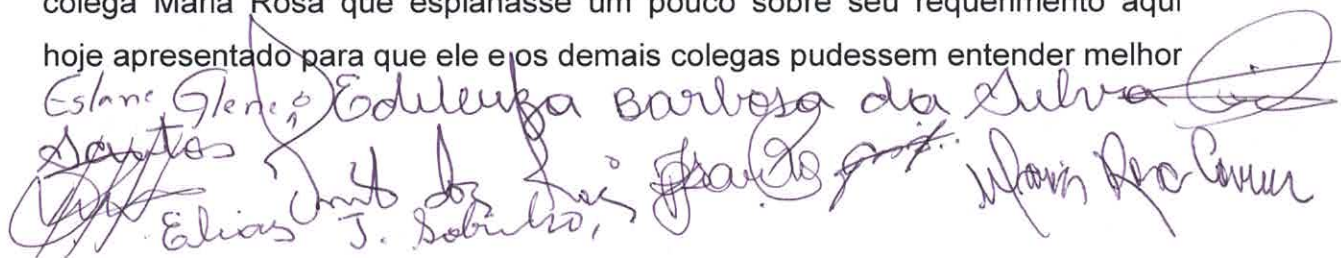 colega Maria Rosa que esplanasse um pouco sobre seu requerimento aqui
hoje apresentado para que ele e os demais colegas pudessem entender melhor
Edileuza Barbosa da Silva
Santos dos Reis
Elias J. Sobrinho, Maria Rosa